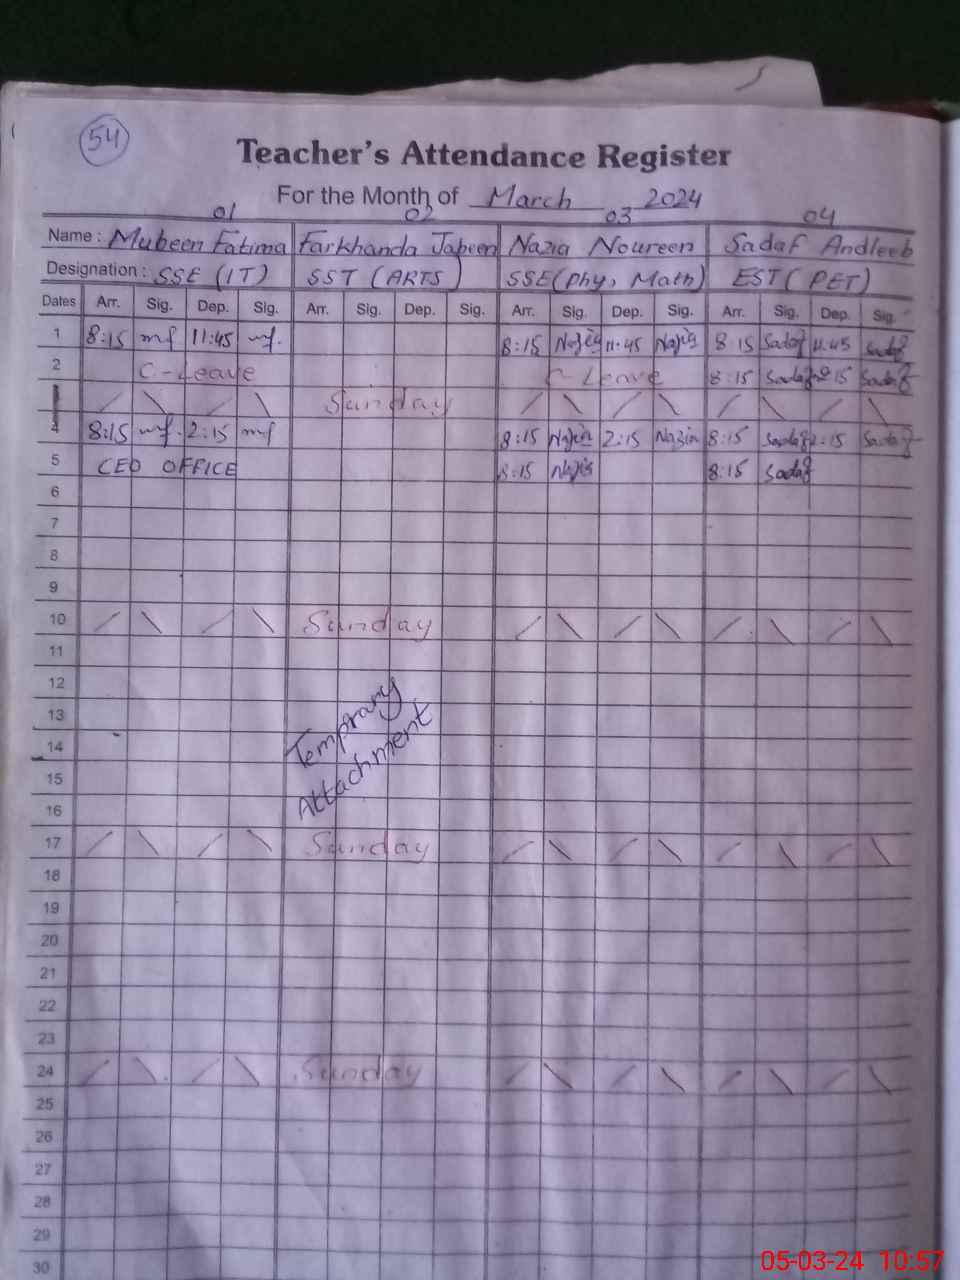 54
Teacher's Attendance Register
For the Month of March 2024
01 02 03 04
Name : Mubeen Fatima Farkhanda Jabeen Nazia Noureen Sadaf Andleeb
Designation : SSE (IT) SST (ARTS) SSE(Phy, Math) EST (PET)
Dates Arr. Sig. Dep. Sig. Arr. Sig. Dep. Sig. Arr. Sig. Dep. Sig. Arr. Sig. Dep. Sig.
1 8:15 mf 11:45 mf. 8:15 Nazia 11:45 Nazia 8:15 Sadaf 11:45 Sadaf
2 C-Leave C-Leave 8:15 Sadaf 2:15 Sadaf
Sunday
4 8:15 mf. 2:15 mf 8:15 Nazia 2:15 Nazia 8:15 Sadaf 2:15 Sadaf
5 CEO OFFICE 8:15 Nazia 8:15 Sadaf
6
7
8
9
10 Sunday
11
12
13 Temprary
14
15 Attachment
16
17 Sunday
18
19
20
21
22
23
24 Sunday
25
26
27
28
29
30
05-03-24 10:57